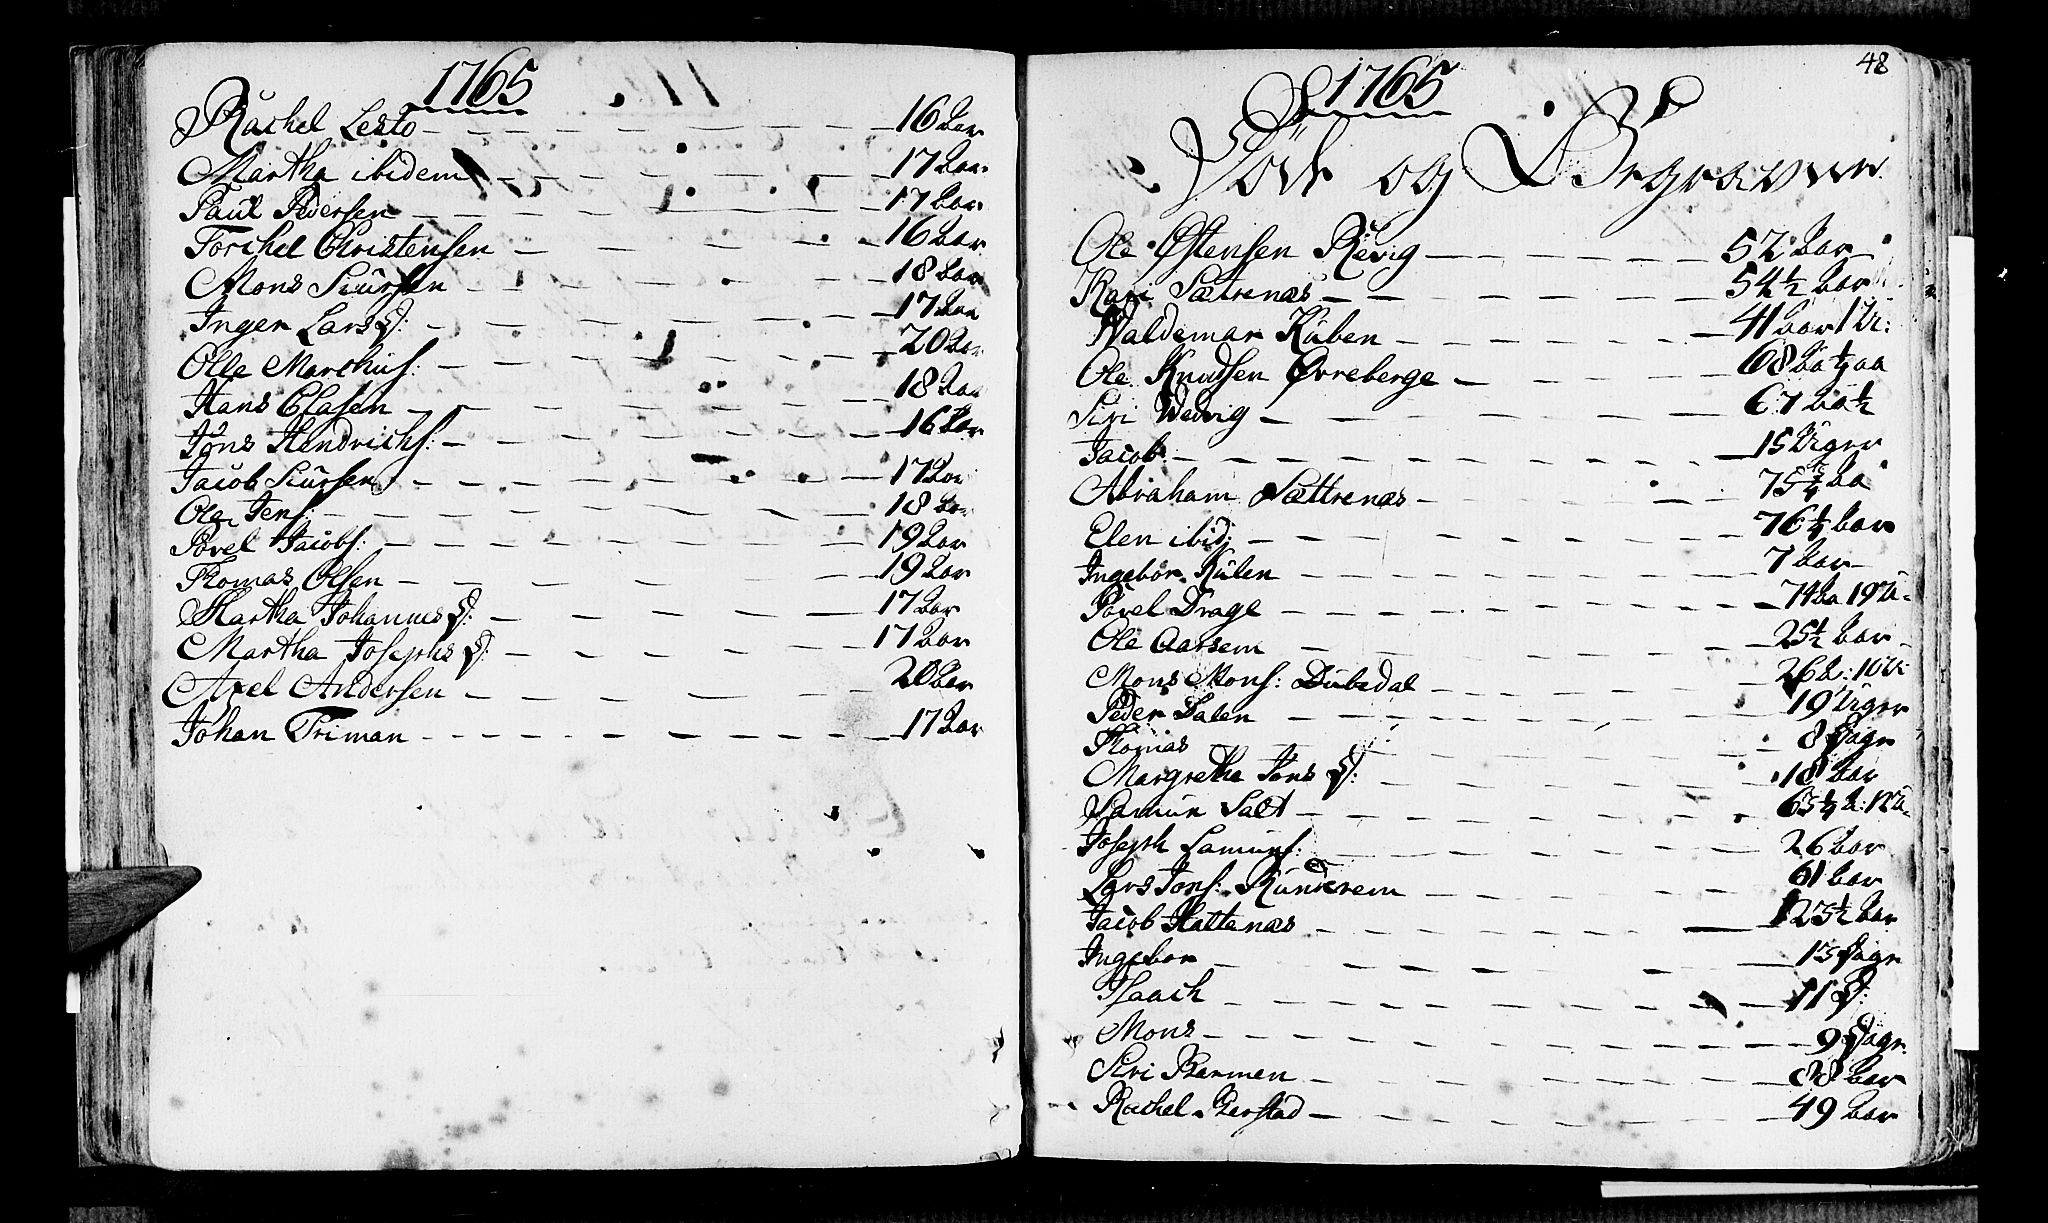 1765
Rachel Lesto - 16 aar
Martha ibidem - 17 aar
Paul Pedersen - 17 aar
Torchel Christensen - 16 aar
Mons Siursen - 18 aar
Inger Lars D: - 17 aar
Olle Marchus: - 20 aar
Hans Clasen - 18 aar
Jöns Hendrichs: - 16 aar
Jacob Siursen - 17 aar
Ole Jens: - 18 aar
Povel Jacobs: - 19 aar
Thomas Olsen - 19 aar
Martha Johannes D: - 17 aar
Martha Josephs D: - 17 aar
Axel Andersen - 20 aar
Johan Triman - 17 aar
48
1765
Död og Begravne
Ole Østensen Røvig - 52 aar
Kari Sætrenæs - 54½ aar
Waldemar Kuben - 41 aar 1 U:
Ole Knudsen Øvreberge - 68 ¼ aa
Siri Wedvig - 67 aa ½
Jacob - 15 Uger
Abraham Sættrenæs - 75¾ aa
Elen ibid: - 76¼ aar
Ingebor Külen - 7 aar
Povel Drage - 74 aa 19 U
Ole Aarsem - 25½ aar
Mons Mons: Dubedal - 26 a: 10 U:
Peder Dalen - 19 Uger
Thomas - 8 Dage
Margrethe Jons D: - 18 aar
Samun Salt - 63¼ a: 12 U
Joseph Samuns: - 26 aar
Lars Jons: Runderem - 61 aar
Jacob Hattenæs - 23½ aar
Ingebor - 13 Dage
Isaach - 11 D:
Mons - 9 Dage
Siri Barmen - 88 aar
Rachel Berstad - 49 aar